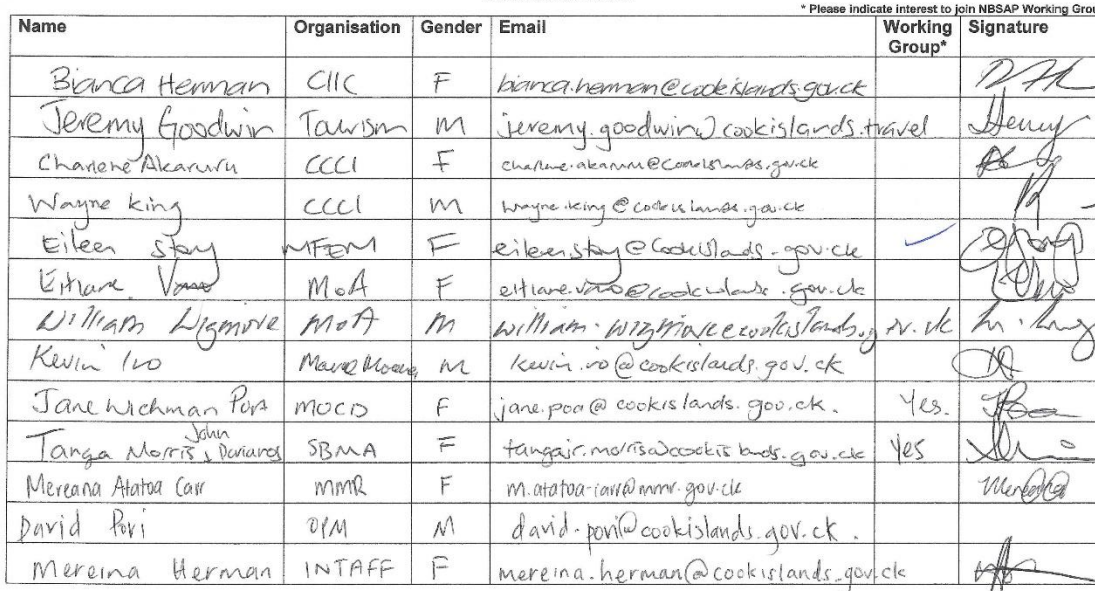 * Please indicate interest to join NBSAP Working Grou
Name Organisation Gender Email Working Group* Signature
Bianca Herman CIIC F bianca.herman@cookislands.gov.ck
Jeremy Goodwin Tourism M jeremy.goodwin@cookislands.travel
Charlene Akaruru CCCI F charlene.akaruru@cookislands.gov.ck
Wayne King CCCI M wayne.king@cookislands.gov.ck
Eileen Story MFEM F eileen.story@cookislands.gov.ck ✓
Eitiane MoA F
William Wigmore MoA M william.wigmore@cookislands.gov.ck
Kevin Iro M kevin.iro@cookislands.gov.ck
Jane Wichman MOCD F jane.poa@cookislands.gov.ck. Yes.
John
Tanga Morris SBMA F tangair.morris@cookislands.gov.ck yes
Mereana Atatoa Carr MMR F m.atatoa-carr@mmr.gov.ck
David Pori OPM M david.pori@cookislands.gov.ck.
Mereina Herman INTAFF F mereina.herman@cookislands.gov.ck